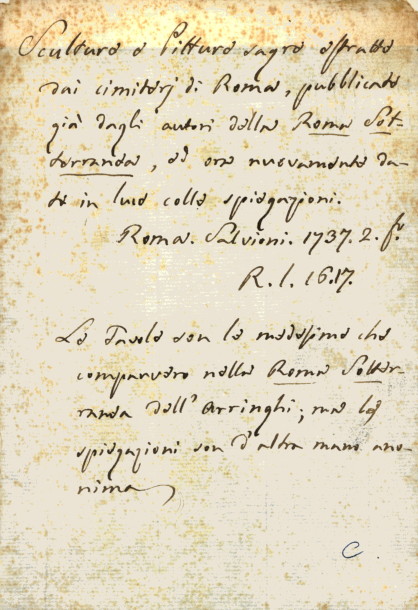 Sculture e Pitture sagre estratte
dai cimiterj di Roma, pubblicate
già dagli autori della Roma Sot-
terranea, ed ora nuovamente da-
te in luce colle spiegazioni.
Roma. Salvioni. 1737. 2. f.º
R. l. 16.17.
Le Tavole son le medesime che
comparvero nella Roma Sotter-
ranea dell' Arringhi; ma le
spiegazioni son d'altra mano ano-
nima
C.